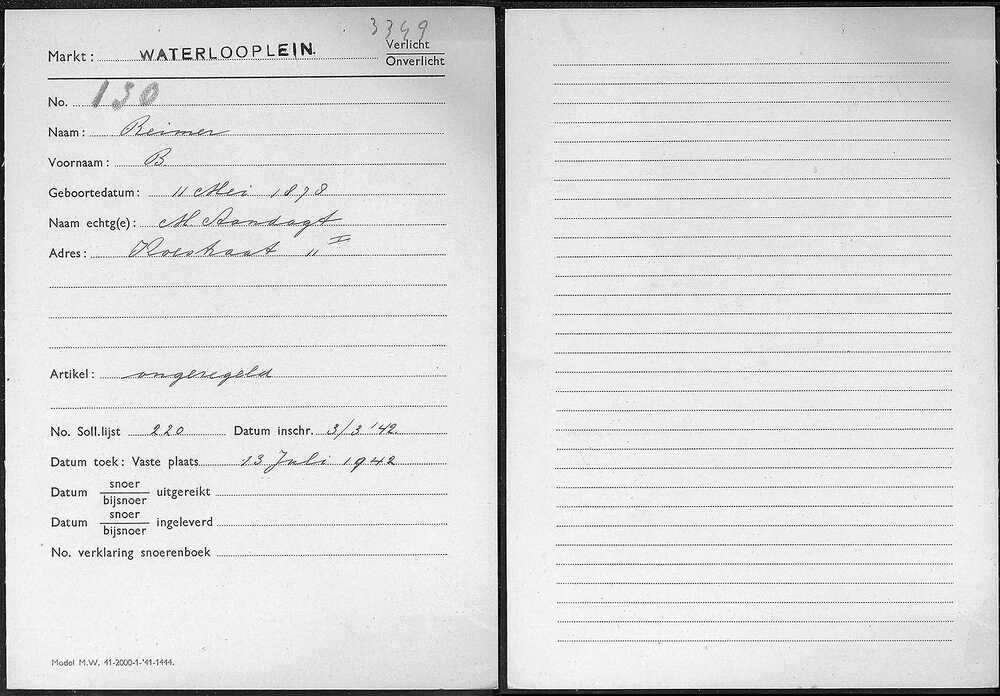 3349
Markt: WATERLOOPLEIN.
Verlicht
Onverlicht
No. 130
Naam: Reimer
Voornaam: B.
Geboortedatum: 11 Mei 1878
Naam echtg(e): M. Aandagt
Adres: 11 I
Artikel: ongeregeld
No. Soll.lijst 220 Datum inschr. 3/3 '42.
Datum toek: Vaste plaats 13 Juli 1942
Datum snoer/bijsnoer uitgereikt
Datum snoer/bijsnoer ingeleverd
No. verklaring snoerenboek
Model M.W. 41-2000-1-'41-1444.